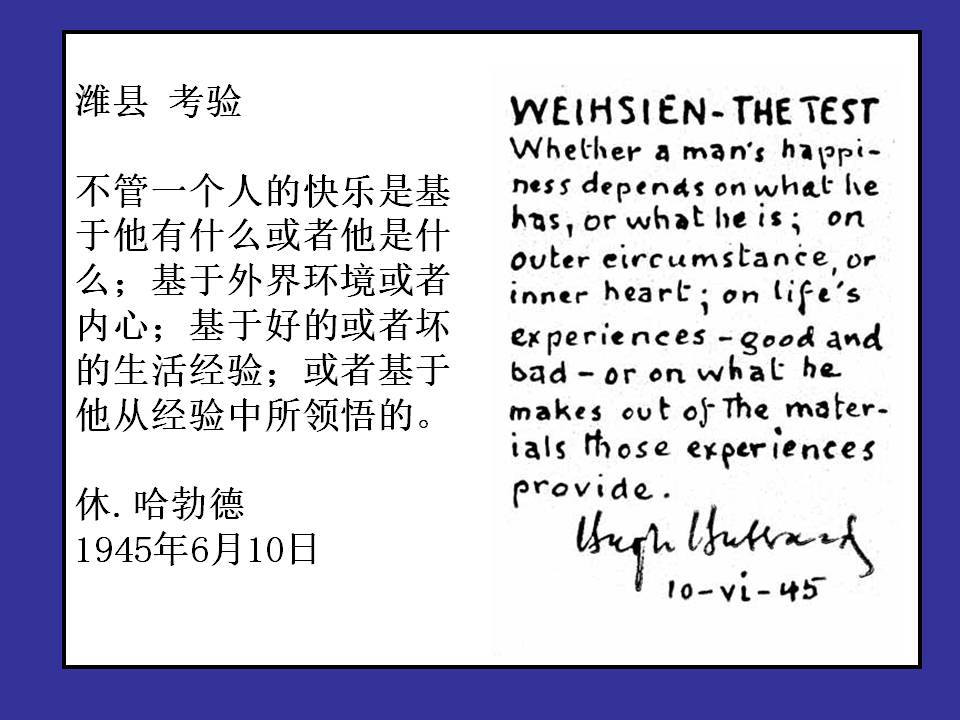 潍县 考验
不管一个人的快乐是基
于他有什么或者他是什
么；基于外界环境或者
内心；基于好的或者坏
的生活经验；或者基于
他从经验中所领悟的。
休.哈勃德
1945年6月10日
WEIHSIEN-THE TEST
Whether a man's happi-
ness depends on what he
has, or what he is; on
outer circumstance, or
inner heart; on life's
experiences - good and
bad - or on what he
makes out of The mater-
ials those experiences
provide.
Hugh Hubbard
10-vi-45